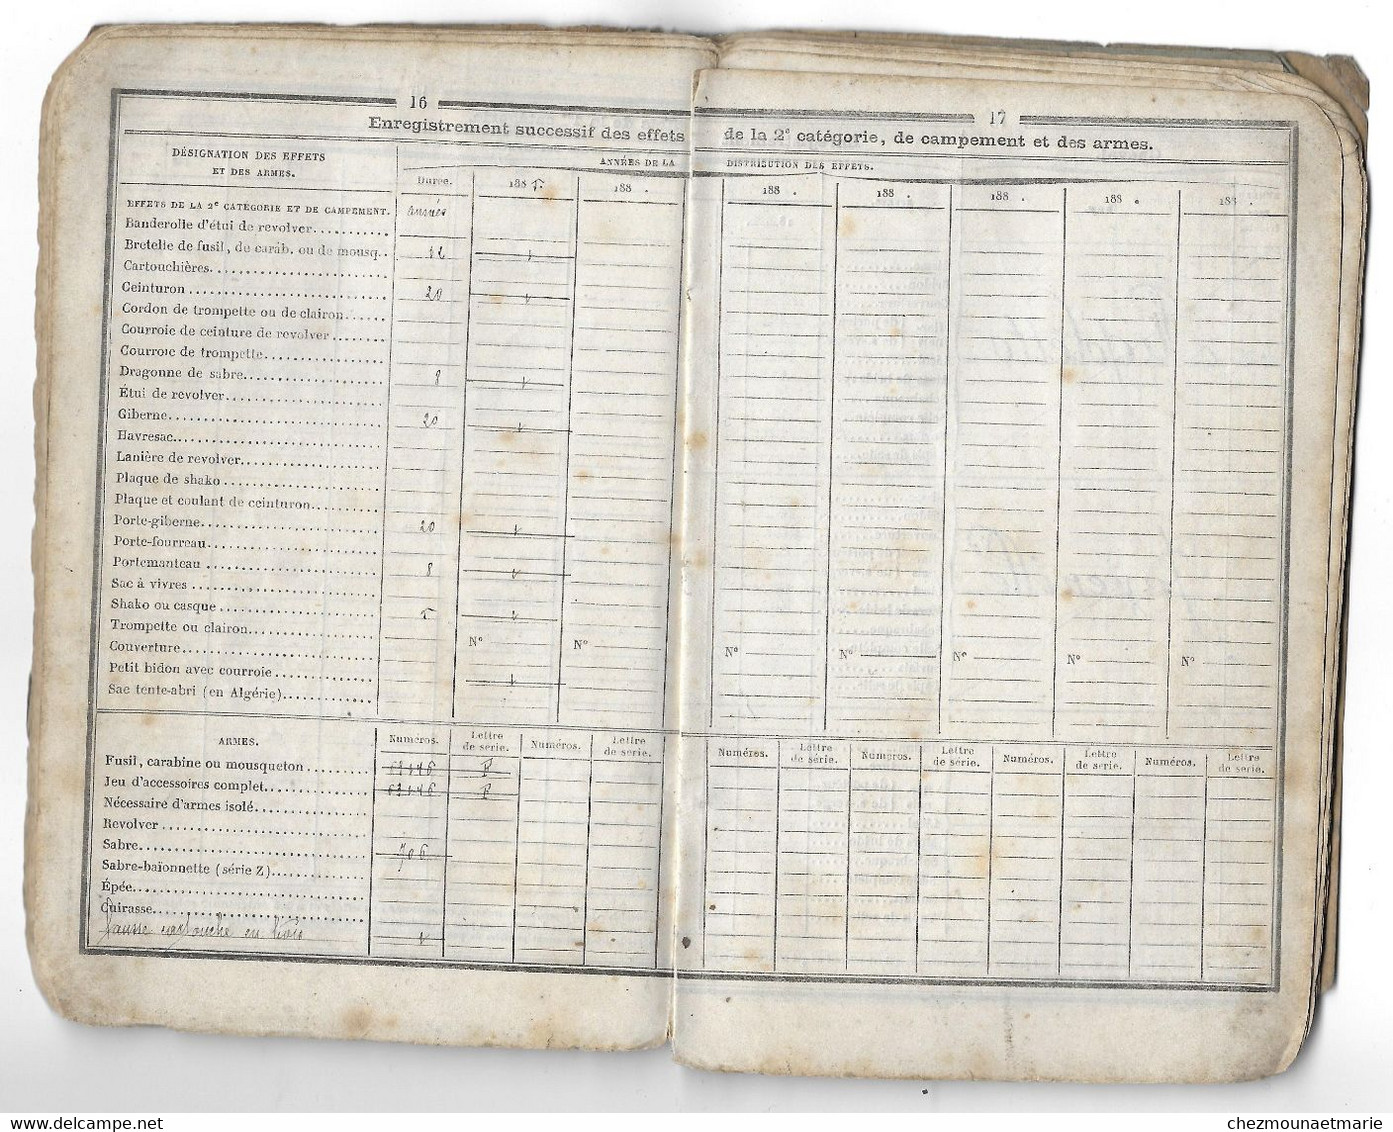 16
17
Enregistrement successif des effets de la 2e catégorie, de campement et des armes.
DÉSIGNATION DES EFFETS
ET DES ARMES.
ANNÉES DE LA DISTRIBUTION DES EFFETS.
Durée. 188 5. 188 . 188 . 188 . 188 . 188 . 188 .
EFFETS DE LA 2e CATÉGORIE ET DE CAMPEMENT. années
Banderolle d'étui de revolver
Bretelle de fusil, de carab. ou de mousq.. 12 1
Cartouchières
Ceinturon 20 1
Cordon de trompette ou de clairon
Courroie de ceinture de revolver
Courroie de trompette
Dragonne de sabre 8 1
Étui de revolver
Giberne 20 1
Havresac
Lanière de revolver
Plaque de shako
Plaque et coulant de ceinturon
Porte-giberne 20 1
Porte-fourreau
Portemanteau 8 1
Sac à vivres
Shako ou casque 5 1
Trompette ou clairon
Couverture N° N° N° N° N° N° N°
Petit bidon avec courroie 1
Sac tente-abri (en Algérie)
ARMES. Numéros. Lettre de série. Numéros. Lettre de série. Numéros. Lettre de série. Numéros. Lettre de série. Numéros. Lettre de série. Numéros. Lettre de série.
Fusil, carabine ou mousqueton F
Jeu d'accessoires complet F
Nécessaire d'armes isolé
Revolver
Sabre 706
Sabre-baïonnette (série Z)
Épée
Cuirasse
fausse cartouche en bois 1
delcampe.net
chezmounaetmarie